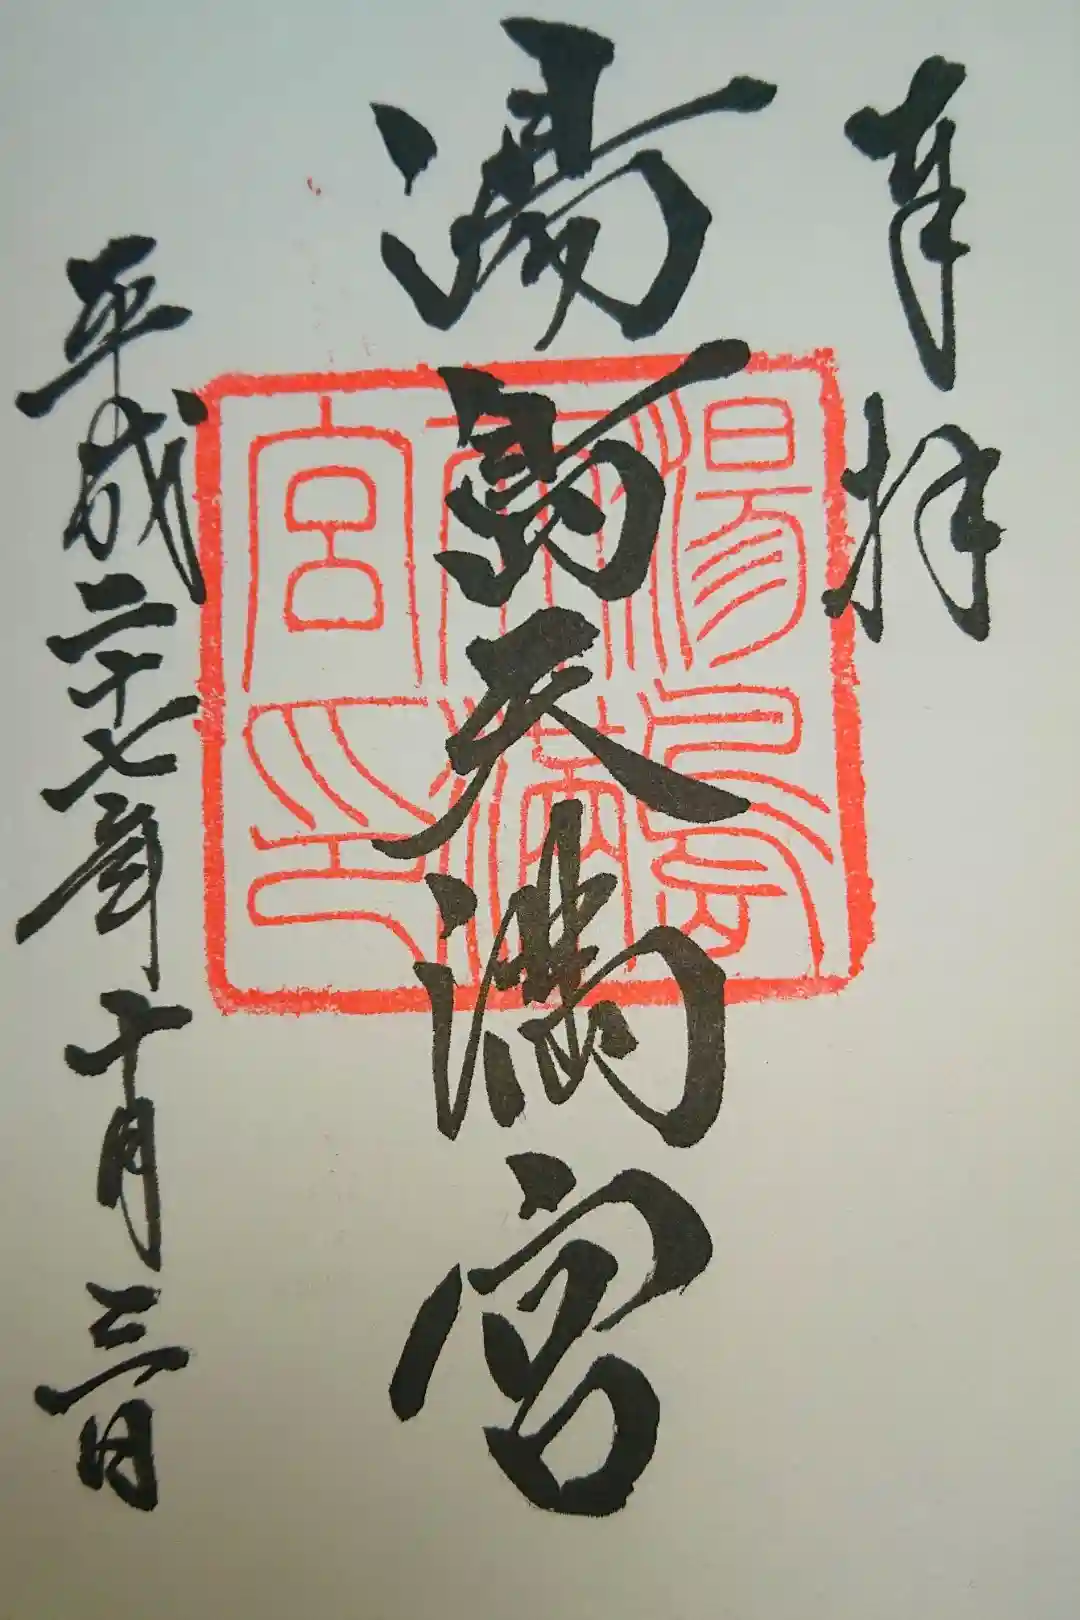 奉拝
湯島天満宮
平成二十七年十月三日
湯島
天満
宮印